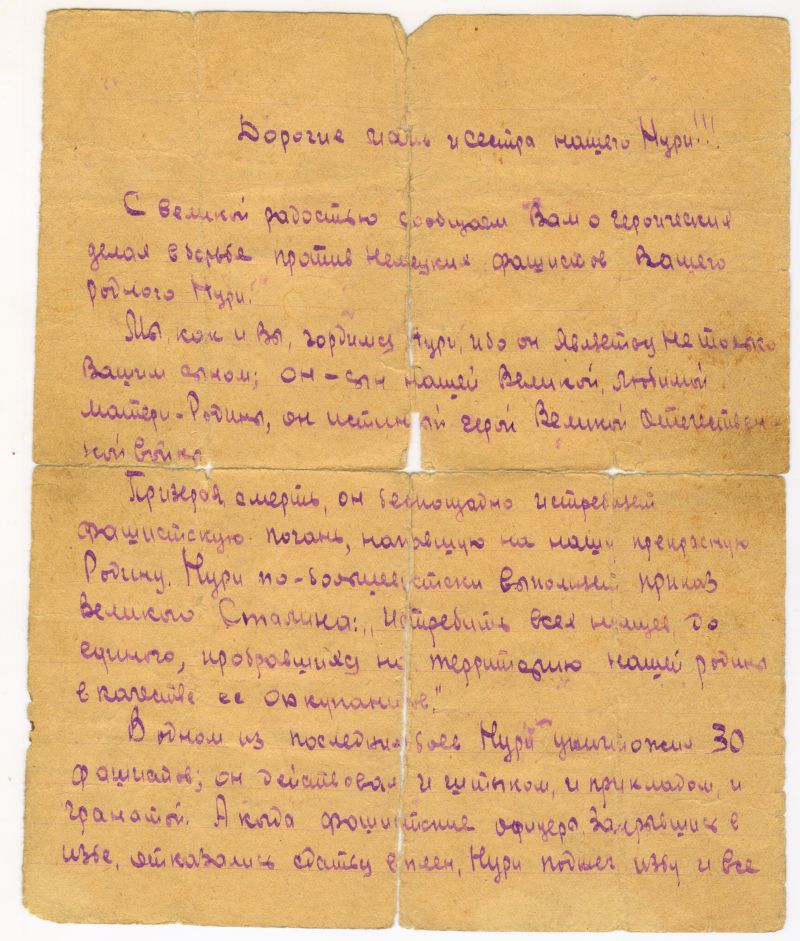 Дорогие мать и сестра нашего Нури!!!
С великой радостью сообщаем Вам о героических
делах в борьбе против немецких фашистов Вашего
родного Нури!
Мы, как и Вы, гордимся Нури, ибо он является не только
Вашим сыном; он – сын нашей Великой, любимой
матери-Родины, он истинный герой Великой Отечествен-
ной войны
Призерая смерть, он беспощадно истребляет
фашистскую погань, напавшую на нашу прекрасную
Родину. Нури по-большевистски выполняет приказ
Великого Сталина: „Истребить всех немцев, до
единого, пробравшихся на территорию нашей родины
в качестве ее оккупантов."
В одном из последних боев Нури уничтожил 30
фашистов; он действовал и штыком, и прикладом, и
гранатой. А когда фашистские офицеры, закрывшись в
избе, отказались сдаться в плен, Нури поджег избу и все